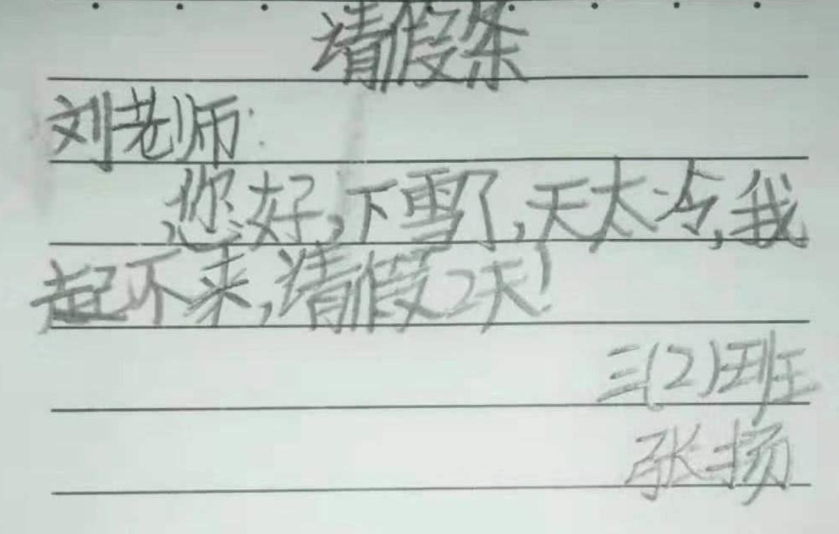 请假条
刘老师:
您好,下雪了,天太冷,我
起不来,请假2天!
三(2)班
张扬